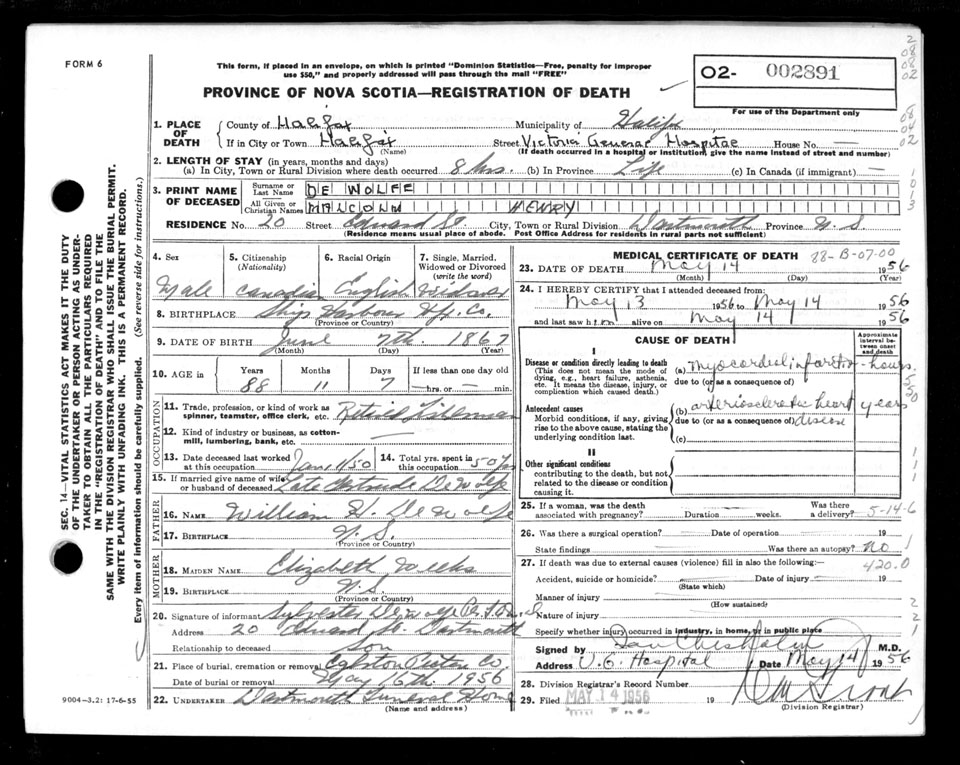 FORM 6
This form, if placed in an envelope, on which is printed "Dominion Statistics—Free, penalty for improper
use $50," and properly addressed will pass through the mail "FREE"
PROVINCE OF NOVA SCOTIA—REGISTRATION OF DEATH
02- 002891
For use of the Department only
1. PLACE OF DEATH
County of Halifax Municipality of Halifx
If in City or Town Halifax Street Victoria General Hospital House No. —
(Name) (If death occurred in a hospital or institution, give the name instead of street and number)
2. LENGTH OF STAY (in years, months and days)
(a) In City, Town or Rural Division where death occurred 8 hrs. (b) In Province Life (c) In Canada (if immigrant) —
3. PRINT NAME OF DECEASED
Surname or Last Name DE WOLFE
All Given or Christian Names MALCOLM HENRY
RESIDENCE No. 20 Street Edward St City, Town or Rural Division Dartmouth Province N.S.
(Residence means usual place of abode. Post Office Address for residents in rural parts not sufficient)
4. Sex Male
5. Citizenship (Nationality) Canadian
6. Racial Origin English
7. Single, Married, Widowed or Divorced (write the word) Widower
8. BIRTHPLACE Ship Harbour Hfx. Co.
(Province or Country)
9. DATE OF BIRTH June 7th. 1867
(Month) (Day) (Year)
10. AGE in Years 88 Months 11 Days 7 If less than one day old
—hrs. or — min.
OCCUPATION
11. Trade, profession, or kind of work as spinner, teamster, office clerk, etc. Retired Fisherman
12. Kind of industry or business, as cotton-mill, lumbering, bank, etc. —
13. Date deceased last worked at this occupation Jan. 1/50
14. Total yrs. spent in this occupation 50 yrs
15. If married give name of wife or husband of deceased Late Gertrude DeWolfe
FATHER
16. NAME William H. DeWolfe
17. BIRTHPLACE N.S.
(Province or Country)
MOTHER
18. MAIDEN NAME Elizabeth Weeks
19. BIRTHPLACE N.S.
(Province or Country)
20. Signature of informant Sylvester DeWolfe
Address 20 Edward St. Dartmouth
Relationship to deceased son
21. Place of burial, cremation or removal Pictou Co.
Date of burial or removal May 16th. 1956
22. UNDERTAKER Dartmouth Funeral Home
(Name and address)
MEDICAL CERTIFICATE OF DEATH 28-B-07-00
23. DATE OF DEATH May 14 1956
(Month) (Day)
24. I HEREBY CERTIFY that I attended deceased from:
May 13 1956 to May 14 1956
and last saw him alive on May 14 1956
CAUSE OF DEATH
Approximate interval between onset and death
I
Disease or condition directly leading to death
(This does not mean the mode of dying, e.g., heart failure, asthenia, etc. It means the disease, injury, or complication which caused death.)
(a) myocardial infarction hours
due to (or as a consequence of)
Antecedent causes
Morbid conditions, if any, giving rise to the above cause, stating the underlying condition last.
(b) arteriosclerotic heart disease years
due to (or as a consequence of)
(c)
II
Other significant conditions
contributing to the death, but not related to the disease or condition causing it.
25. If a woman, was the death associated with pregnancy? Duration weeks. Was there a delivery? 5-14-6
26. Was there a surgical operation? Date of operation 19
State findings Was there an autopsy? No
27. If death was due to external causes (violence) fill in also the following: 420.0
Accident, suicide or homicide? Date of injury 19
(State which)
Manner of injury
(How sustained)
Nature of injury
Specify whether injury occurred in industry, in home, or in public place
Signed by Dan Chisholm M.D.
Address V.G. Hospital Date May 14 1956
28. Division Registrar's Record Number
29. Filed MAY 14 1956 19
(Division Registrar)
9004-3.2: 17-6-55
SEC. 14—VITAL STATISTICS ACT MAKES IT THE DUTY
OF THE UNDERTAKER OR PERSON ACTING AS UNDER-
TAKER TO OBTAIN ALL THE PARTICULARS REQUIRED
IN THE "REGISTRATION OF DEATH" AND TO FILE THE
SAME WITH THE DIVISION REGISTRAR WHO SHALL ISSUE THE BURIAL PERMIT.
WRITE PLAINLY WITH UNFADING INK. THIS IS A PERMANENT RECORD.
Every item of information should be carefully supplied. (See reverse side for instructions.)